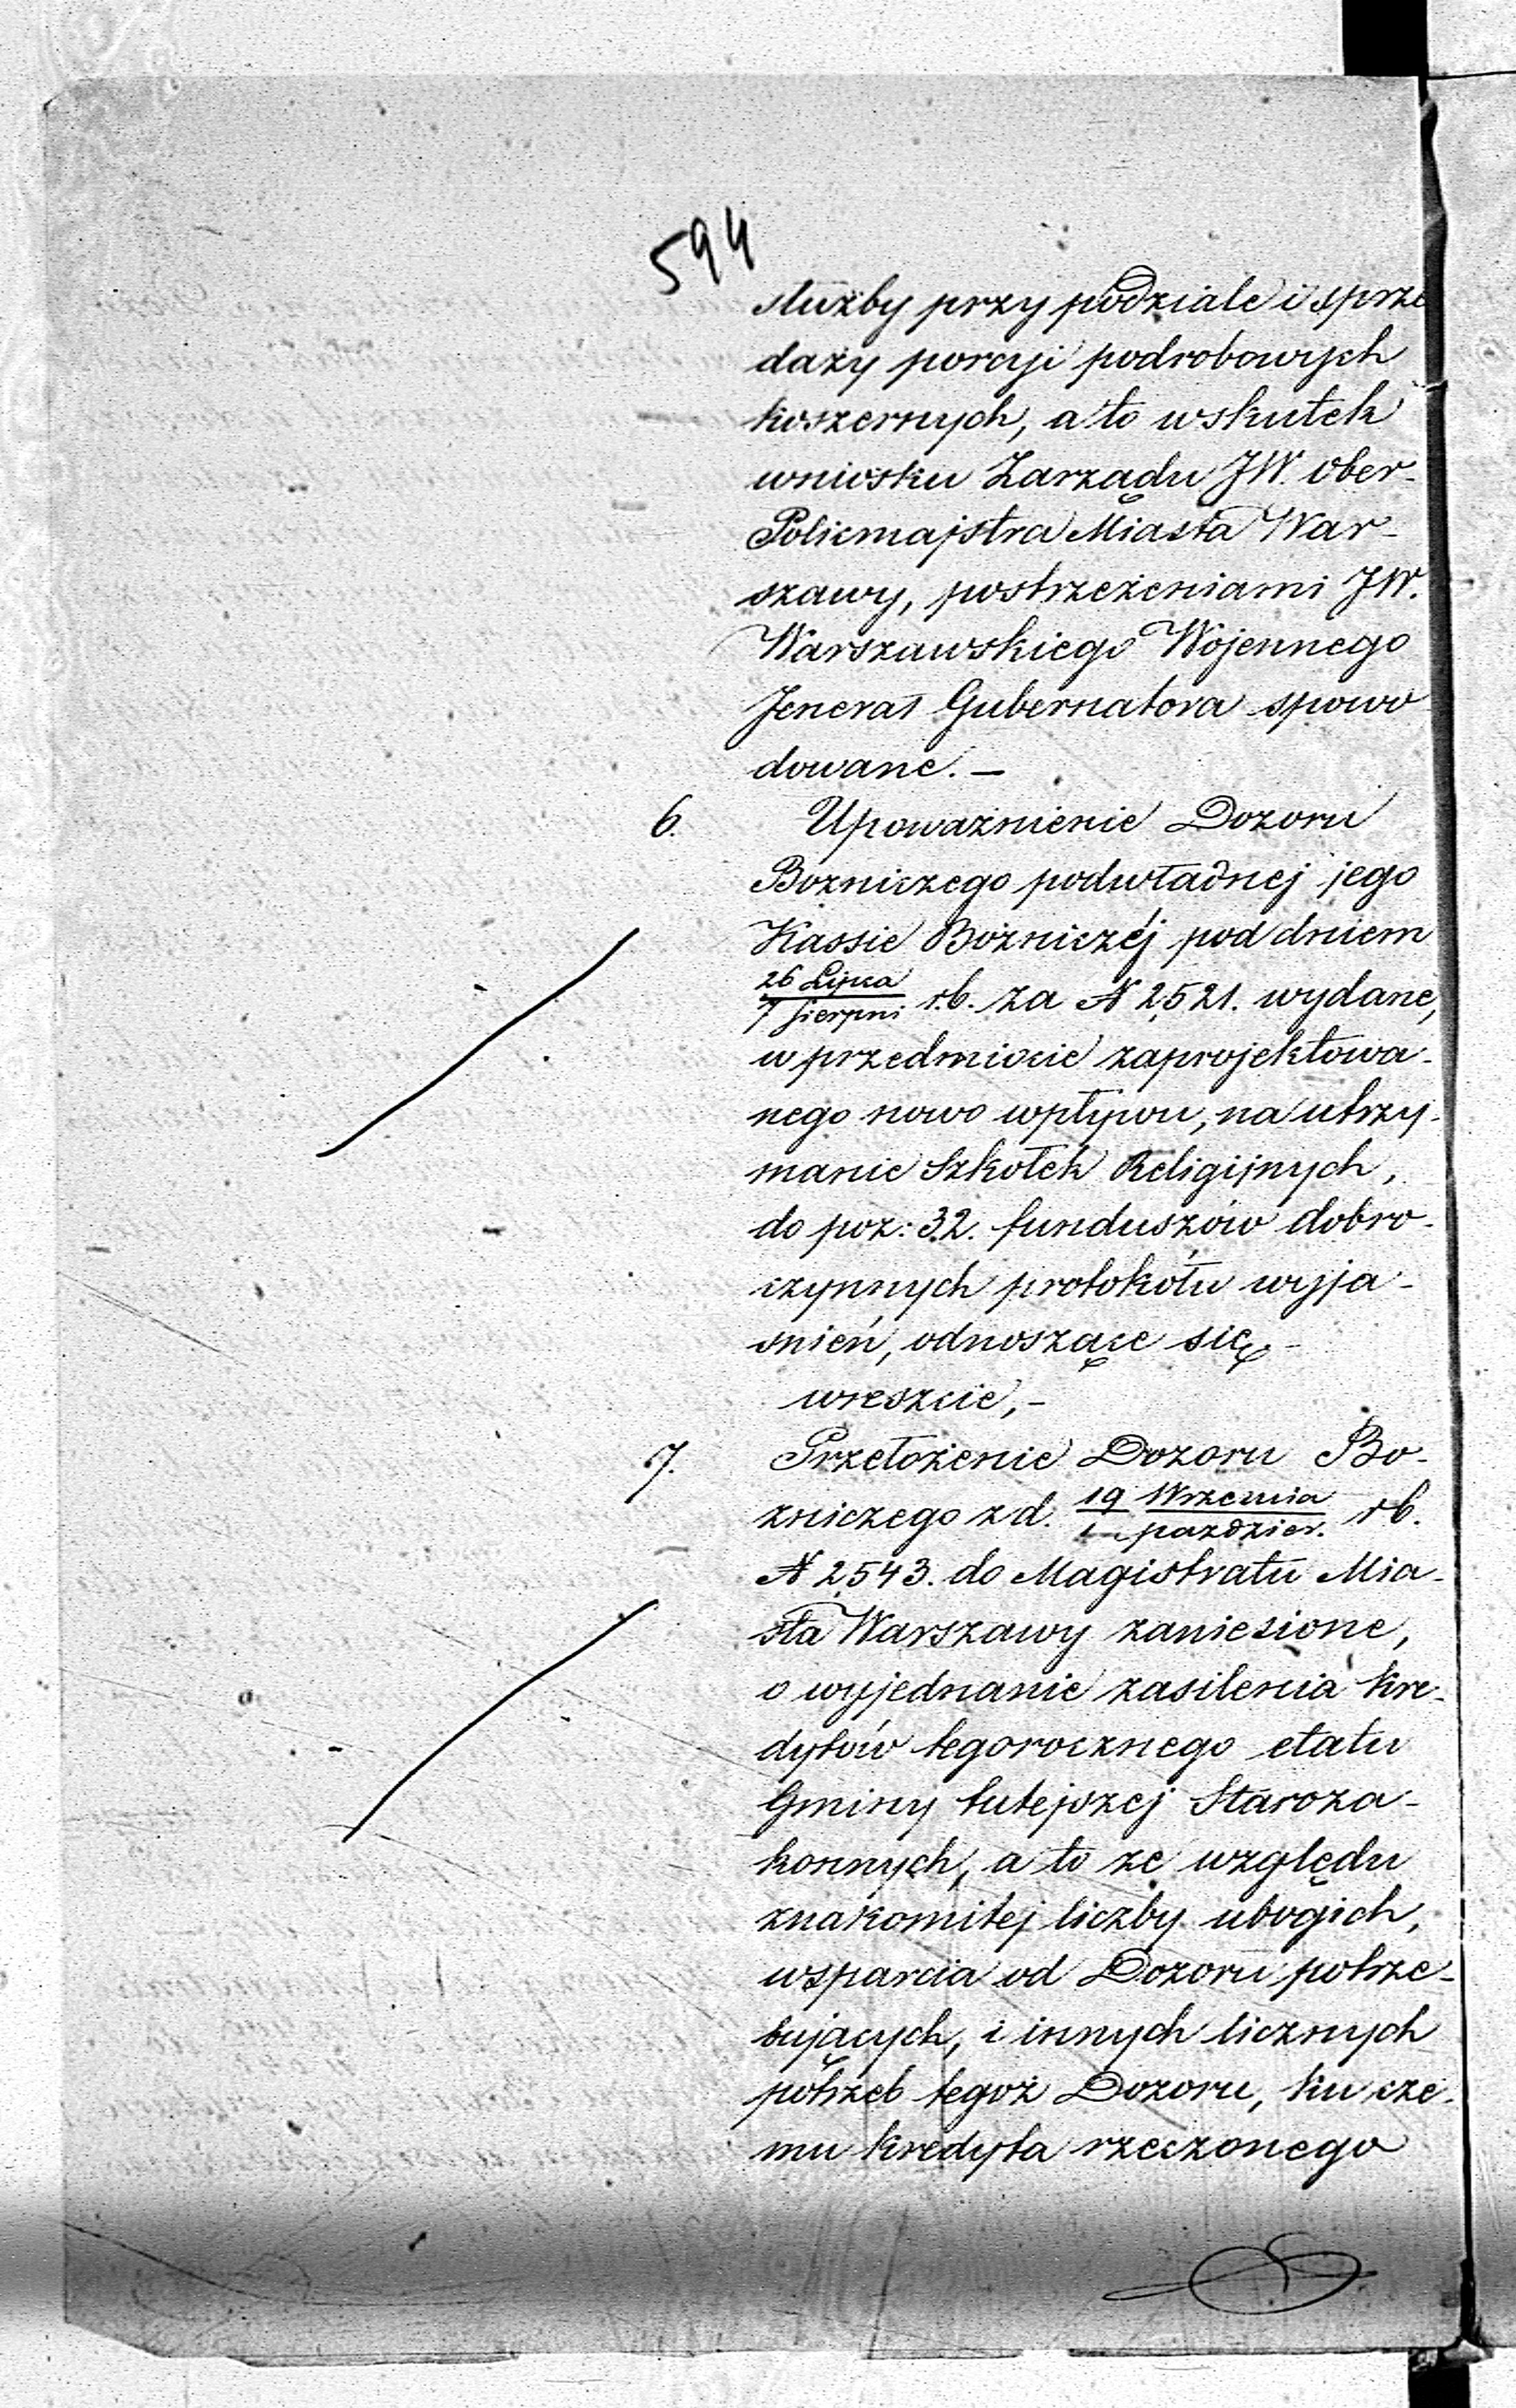 594
służby przy podziale i sprze
daży porcyi podrobowych
koszernych, a to wskutek
wniosku Zarządu JW. Ober-
Policmajstra Miasta War-
szawy, postrzeżeniami JW.
Warszawskiego Wojennego
Jenerał Gubernatora spowo
dowane. –
6. Upoważnienie Dozoru
Bożniczego podwładnej jego
Kassie Bożniczéj pod dniem
26 Lipca / 7 Sierpni r.b. za N 2521. wydane,
w przedmiocie zaprojektowa-
nego nowo wpływu, na utrzy-
manie Szkołek Religijnych,
do poz: 32. funduszów dobro-
czynnych protokołu wyja-
śnień, odnoszące się –
wreszcie, –
7. Przełożenie Dozoru Bo-
żniczego z d. 19 Września / paździer. r.b.
N 2543. do Magistratu Mia-
sta Warszawy zaniesione,
o wyjednanie zasilenia kre-
dytów tegorocznego etatu
Gminy tutejszej Staroza-
konnych, a to ze względu
znakomitej liczby ubogich,
wsparcia od Dozoru potrze-
bujących, i innych licznych
potrzeb tegoż Dozoru, ku cze-
mu kredyta rzeczonego